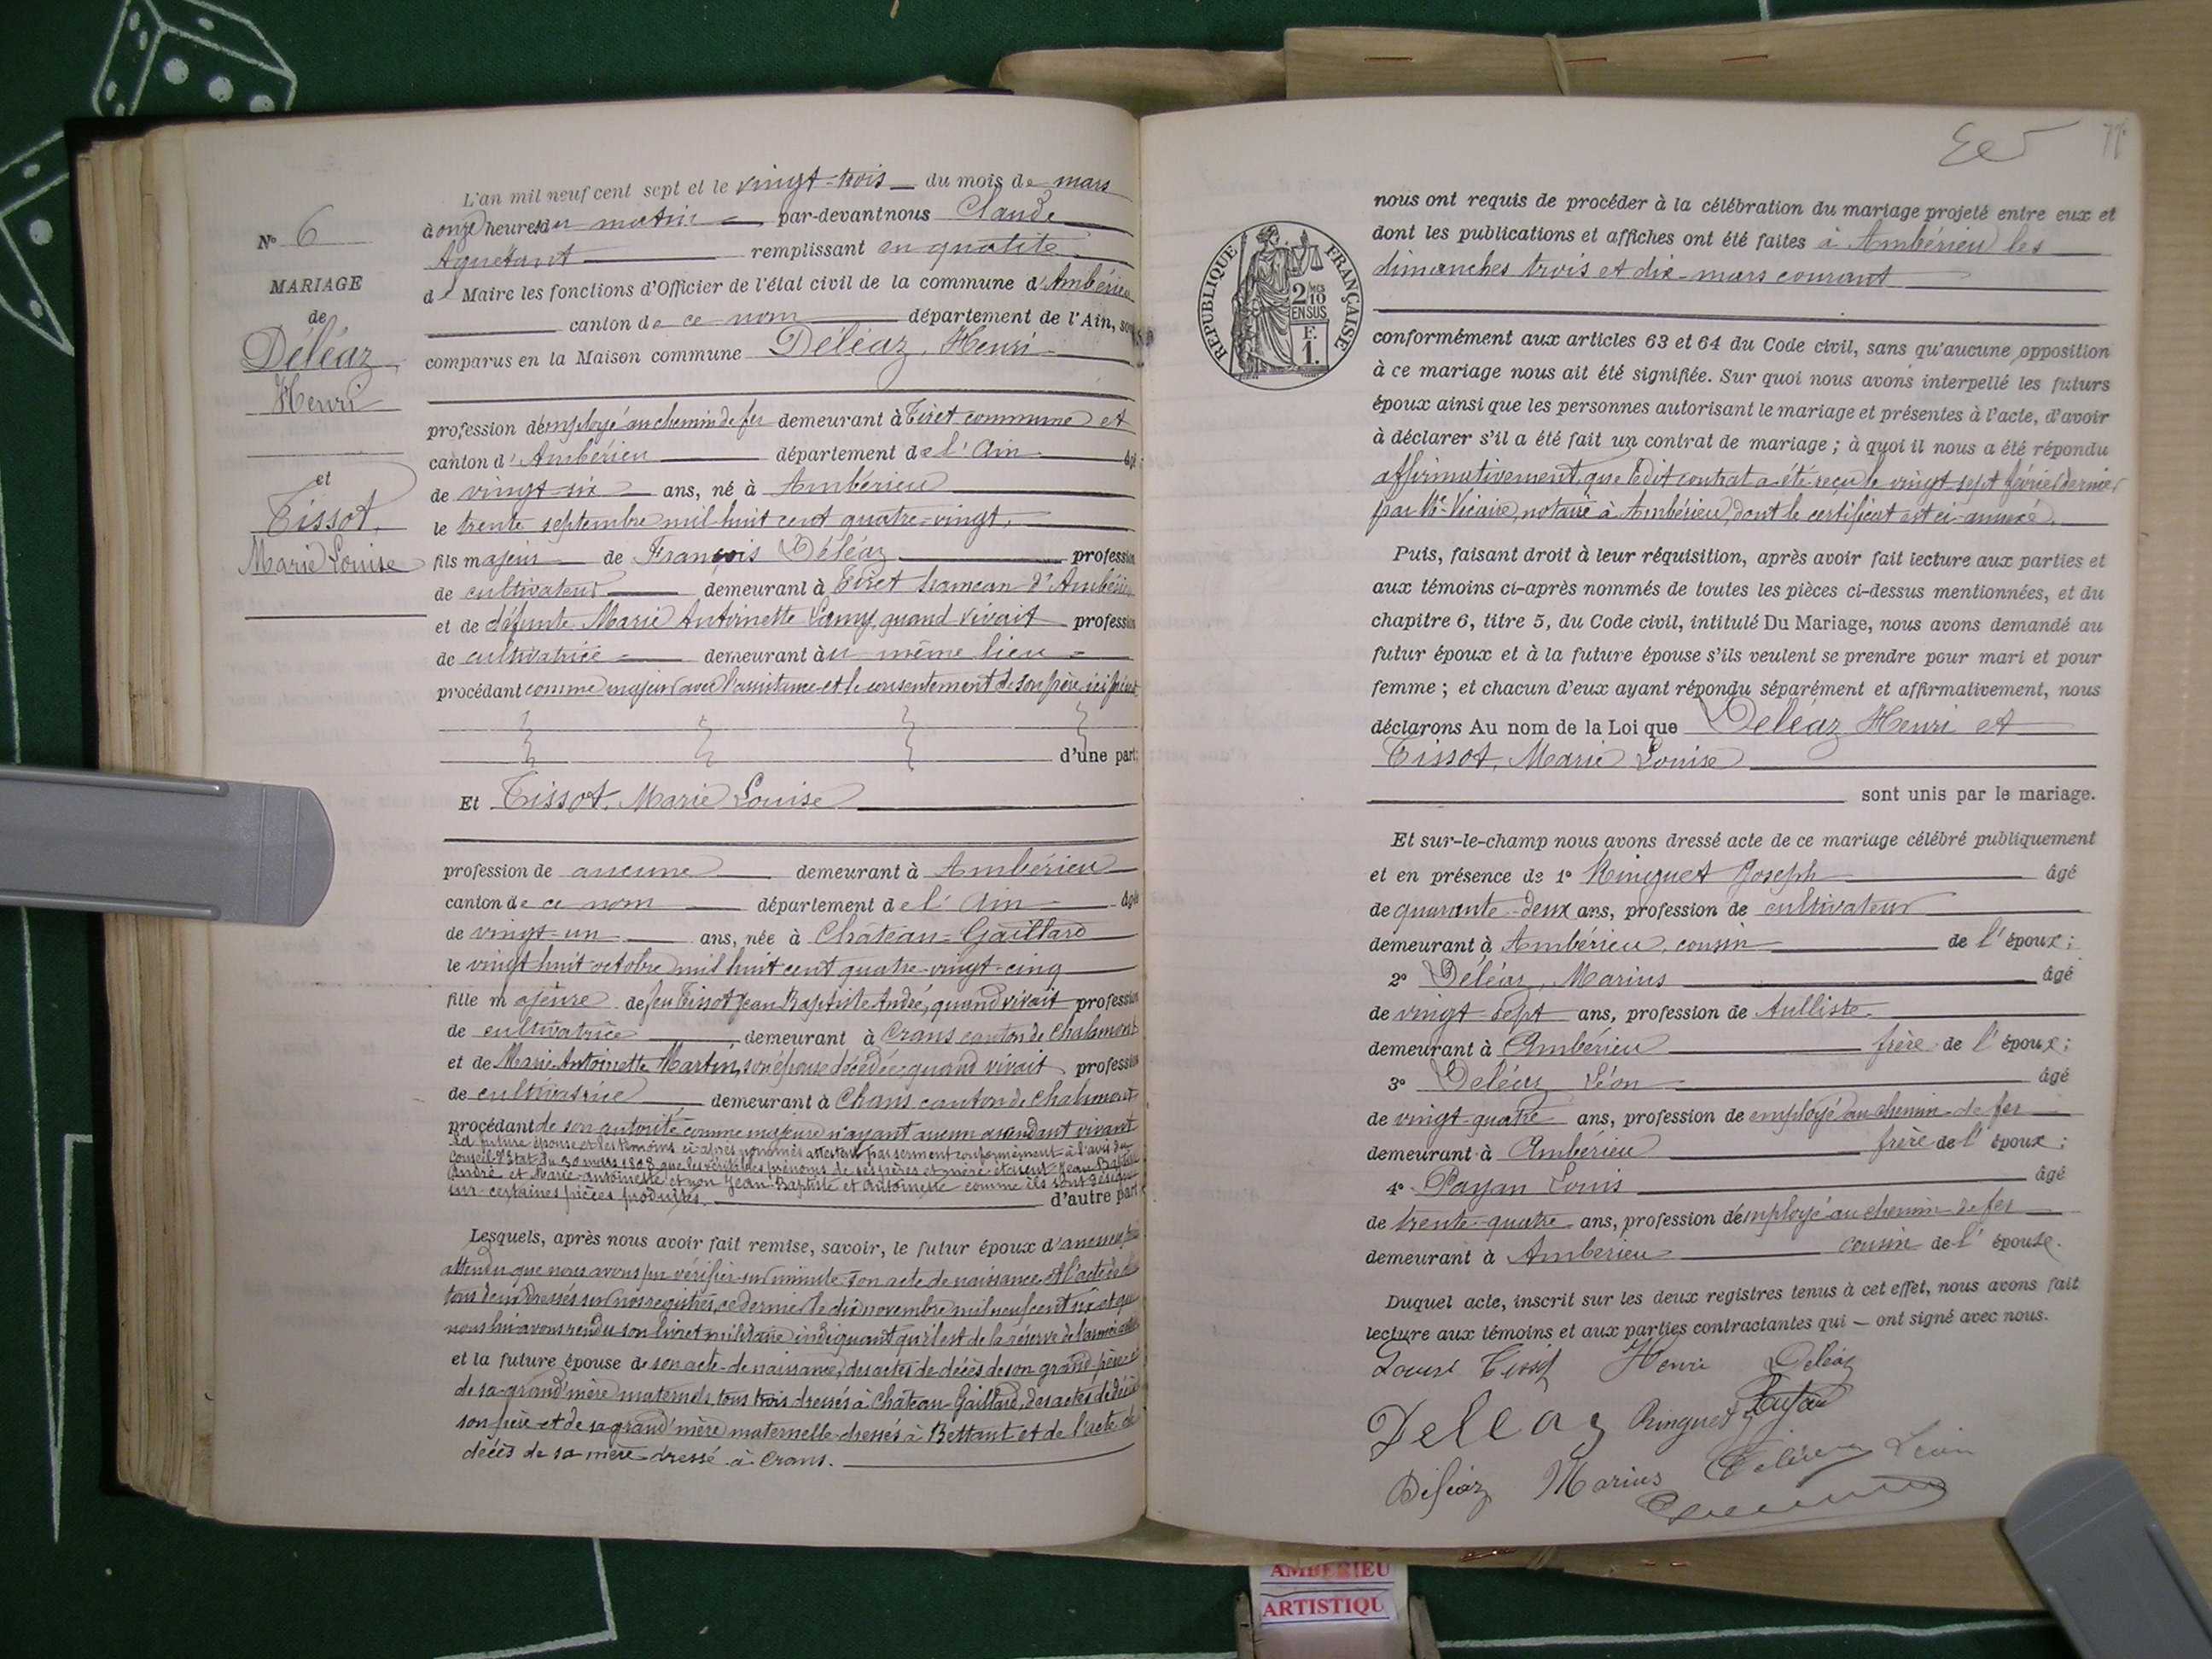 N° 6
MARIAGE
de
Déléaz
Henri
et
Tissot,
Marie Louise
L'an mil neuf cent sept et le vingt-trois du mois de mars
à onze heures du matin par-devant nous Claude
Aguetant remplissant en qualité
de Maire les fonctions d'Officier de l'état civil de la commune d'Ambérieu
canton de ce nom département de l'Ain, sont
comparus en la Maison commune Déléaz, Henri
profession d'employé au chemin de fer demeurant à Tiret commune et
canton d'Ambérieu département de l'Ain âgé
de vingt-six ans, né à Ambérieu
le trente septembre mil huit cent quatre-vingt,
fils majeur de François Déléaz profession
de cultivateur demeurant à Tiret hameau d'Ambérieu
et de défunte Marie Antoinette Lamy, quand vivait profession
de cultivatrice demeurant au même lieu
procédant comme majeur avec l'assistance et le consentement de son père ici présent
d'une part;
Et Tissot, Marie Louise
profession de aucune demeurant à Ambérieu
canton de ce nom département de l'Ain âgée
de vingt-un ans, née à Château-Gaillard
le vingt huit octobre mil huit cent quatre-vingt-cinq
fille majeure de feu Tissot Jean Baptiste André, quand vivait profession
de cultivatrice demeurant à Crans canton de Chalamont
et de Marie Antoinette Martin, son épouse décédée quand vivait profession
de cultivatrice demeurant à Chans canton de Chalamont
procédant de son autorité comme majeure n'ayant aucun ascendant vivant
La future épouse et les témoins ci-après nommés attestent par serment conformément à l'avis du
Conseil d'Etat du 30 mars 1808 que les véritables prénoms de ses père et mère étaient Jean Baptiste
André et Marie-Antoinette et non Jean-Baptiste et Antoinette comme ils sont désignés
sur certaines pièces produites. d'autre part
Lesquels, après nous avoir fait remise, savoir, le futur époux d'aucune pièce
attendu que nous avons pu vérifier sur minute son acte de naissance et l'acte de
tous deux dressés sur nos registres, ce dernier le dix novembre mil neuf cent six et que
nous lui avons rendu son livret militaire indiquant qu'il est de la réserve de l'armée active
et la future épouse de son acte de naissance, des actes de décès de son grand-père et
de sa grand'mère maternels tous trois dressés à Château-Gaillard, des actes de décès de
son père et de sa grand'mère maternelle dressés à Bettant et de l'acte de
décès de sa mère dressé à Crans.
77
RÉPUBLIQUE FRANÇAISE
2/10
EN SUS
F.
1.
nous ont requis de procéder à la célébration du mariage projeté entre eux et
dont les publications et affiches ont été faites à Ambérieu les
dimanches trois et dix mars courant
conformément aux articles 63 et 64 du Code civil, sans qu'aucune opposition
à ce mariage nous ait été signifiée. Sur quoi nous avons interpellé les futurs
époux ainsi que les personnes autorisant le mariage et présentes à l'acte, d'avoir
à déclarer s'il a été fait un contrat de mariage; à quoi il nous a été répondu
affirmativement, que ledit contrat a été reçu le vingt sept février dernier
par Me Vicaire, notaire à Ambérieu, dont le certificat est ci-annexé.
Puis, faisant droit à leur réquisition, après avoir fait lecture aux parties et
aux témoins ci-après nommés de toutes les pièces ci-dessus mentionnées, et du
chapitre 6, titre 5, du Code civil, intitulé Du Mariage, nous avons demandé au
futur époux et à la future épouse s'ils veulent se prendre pour mari et pour
femme; et chacun d'eux ayant répondu séparément et affirmativement, nous
déclarons Au nom de la Loi que Déléaz Henri et
Tissot, Marie Louise
sont unis par le mariage.
Et sur-le-champ nous avons dressé acte de ce mariage célébré publiquement
et en présence de 1° Ringuet Joseph âgé
de quarante-deux ans, profession de cultivateur
demeurant à Ambérieu, cousin de l'époux;
2° Déléaz, Marius âgé
de vingt-sept ans, profession de tulliste
demeurant à Ambérieu frère de l'époux;
3° Deléaz Léon âgé
de vingt-quatre ans, profession de employé au chemin de fer
demeurant à Ambérieu frère de l'époux;
4° Payan Louis âgé
de trente-quatre ans, profession d'employé au chemin de fer
demeurant à Ambérieu cousin de l'épouse.
Duquel acte, inscrit sur les deux registres tenus à cet effet, nous avons fait
lecture aux témoins et aux parties contractantes qui ont signé avec nous.
Louise Tissot Henri Deléaz
Deléaz Ringuet
Déléaz Marius Déléaz Léon
AMBERIEU
ARTISTIQU